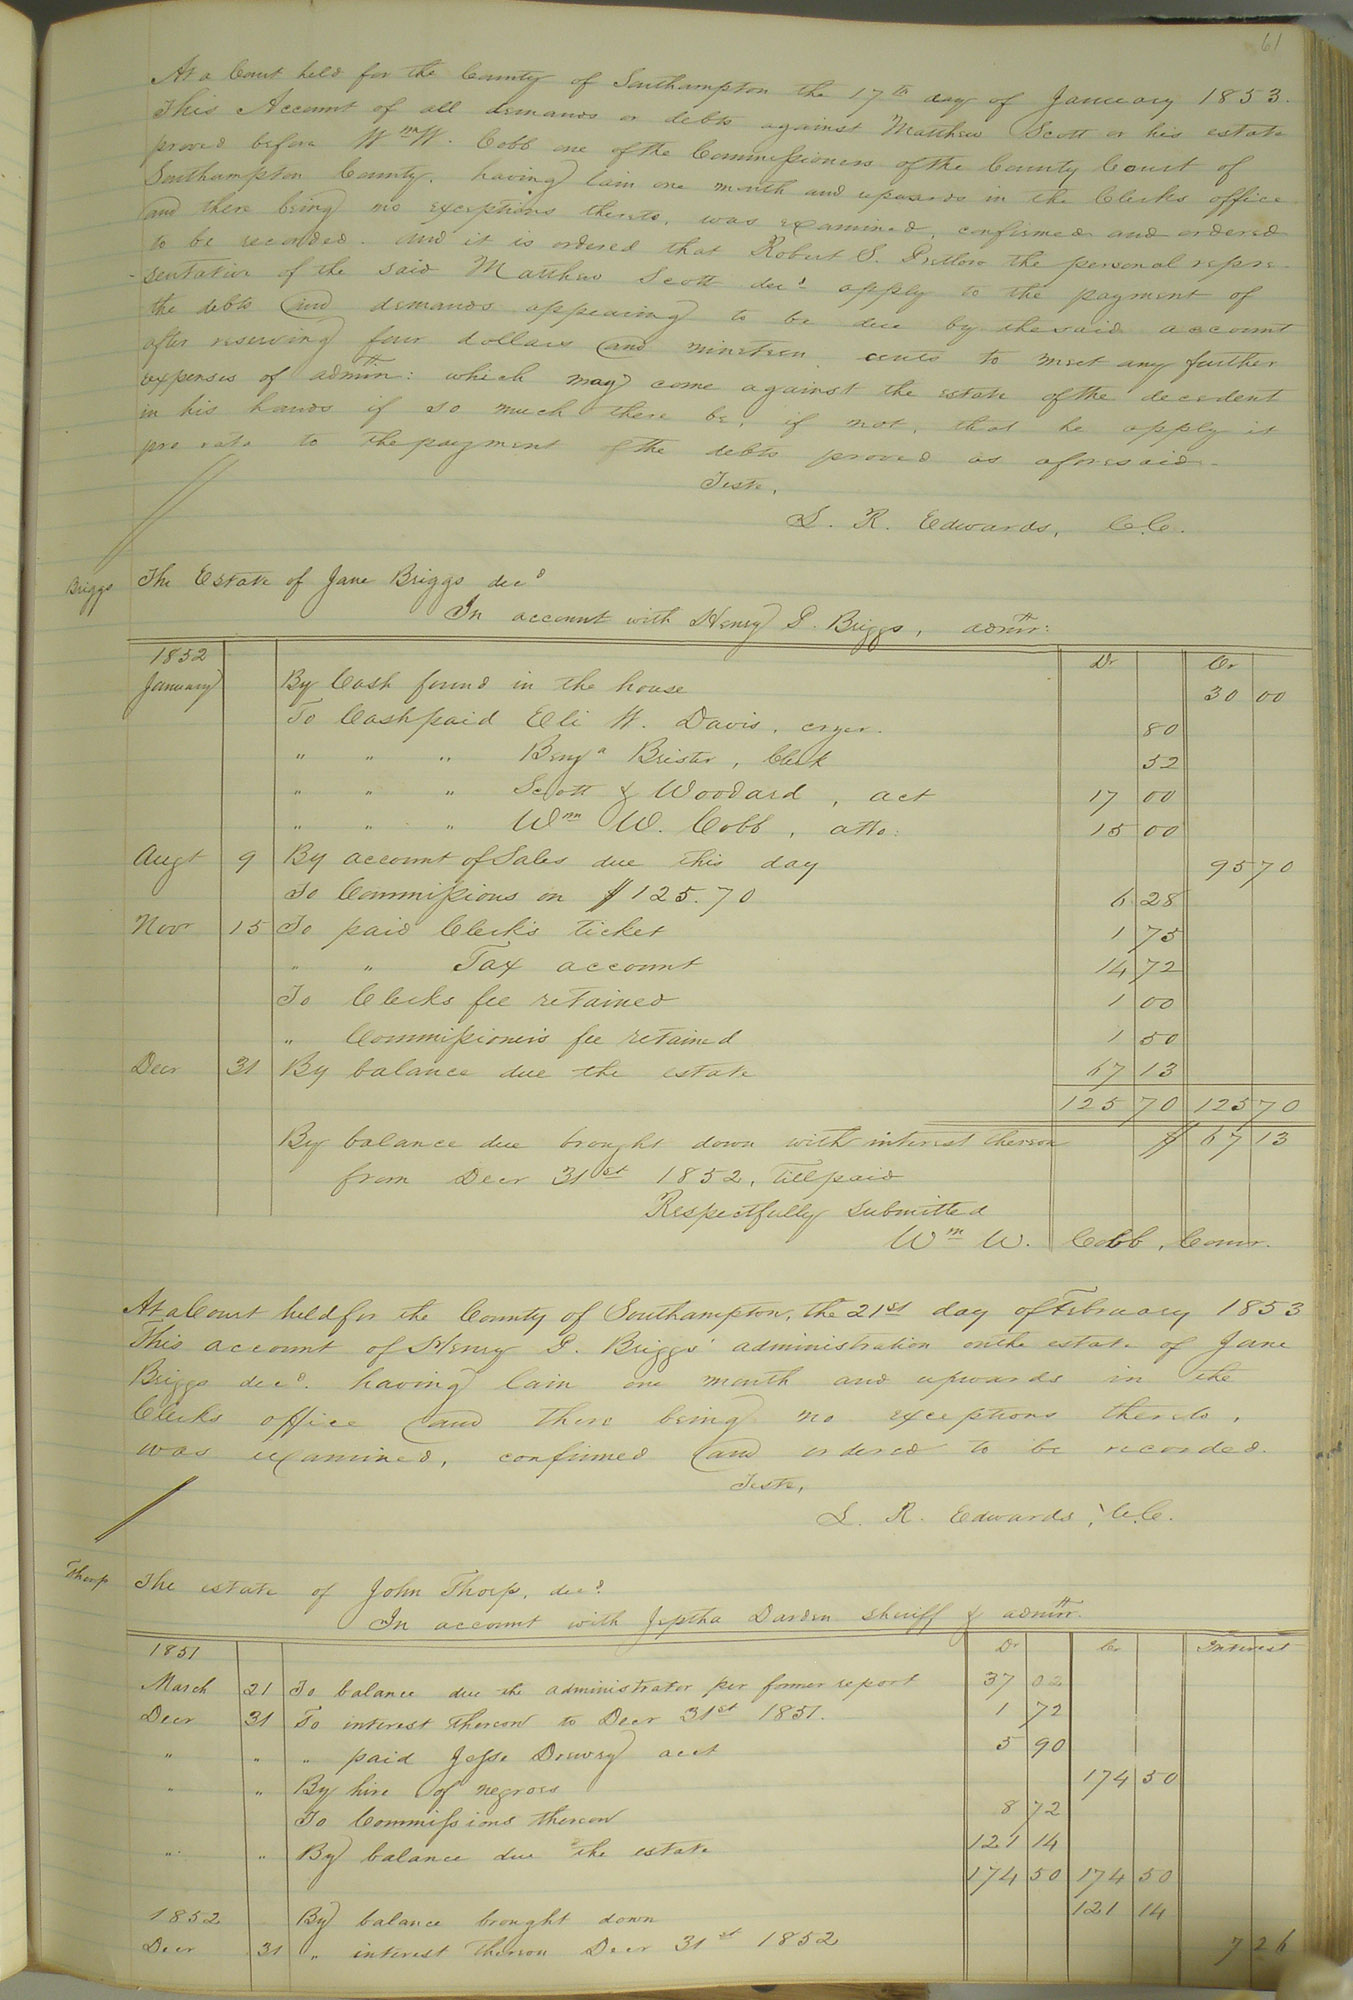 61
At a Court held for the County of Southampton the 17th day of January 1853.
This Account of all demands or debts against Matthew Scott or his estate
proved before Wm W. Cobb one of the Commissioners of the County Court of
Southampton County, having lain one month and upwards in the Clerks office
and there being no exceptions thereto, was examined, confirmed and ordered
to be recorded. And it is ordered that Robert S. Pretlow the personal repre-
-sentative of the said Matthew Scott decd apply to the payment of
the debts and demands appearing to be due by the said account
after reserving four dollars and nineteen cents to meet any further
expenses of admtn: which may come against the estate of the decedent
in his hands if so much there be, if not, that he apply it
pro rata to the payment of the debts proved as aforesaid.
Teste,
L. R. Edwards, C.C.
Briggs The Estate of Jane Briggs decd
In account with Henry Briggs, admtr:
1852 Dr Cr
January By Cash found in the house 30 00
To Cash paid Eli W. Davis, cryer. 80
" " " Benja Brister, Clerk 52
" " " Scott & Woodard, act 17 00
" " " Wm W. Cobb, atto: 15 00
Augt 9 By account of Sales due this day 95 70
To Commissions on $125.70 6 28
Novr 15 To paid Clerk's ticket 1 75
" " Tax account 14 72
To Clerks fee retained 1 00
" Commissioner's fee retained 1 50
Decr 31 By balance due the estate 67 13
125 70 125 70
By balance due brought down with interest thereon $ 67 13
from Decr 31st 1852, till paid
Respectfully submitted
Wm W. Cobb, Comr.
At a Court held for the County of Southampton, the 21st day of February 1853
This account of Henry Briggs' administration on the estate of Jane
Briggs decd. having lain one month and upwards in the
Clerks office and there being no exceptions thereto,
was examined, confirmed and ordered to be recorded.
Teste,
L. R. Edwards, C.C.
Thorp The estate of John Thorp, decd.
In account with Jeptha Darden sheriff & admtr.
1851 Dr Cr Interest
March 21 To balance due the administrator per former report 37 02
Decr 31 To interest thereon to Decr 31st 1851. 1 72
" " " paid Jesse Drewry acct 5 90
" " By hire of negroes 174 50
To Commissions thereon 8 72
" " By balance due the estate 121 14
174 50 174 50
1852 By balance brought down 121 14
Decr 31 " interest thereon Decr 31st 1852 7 26